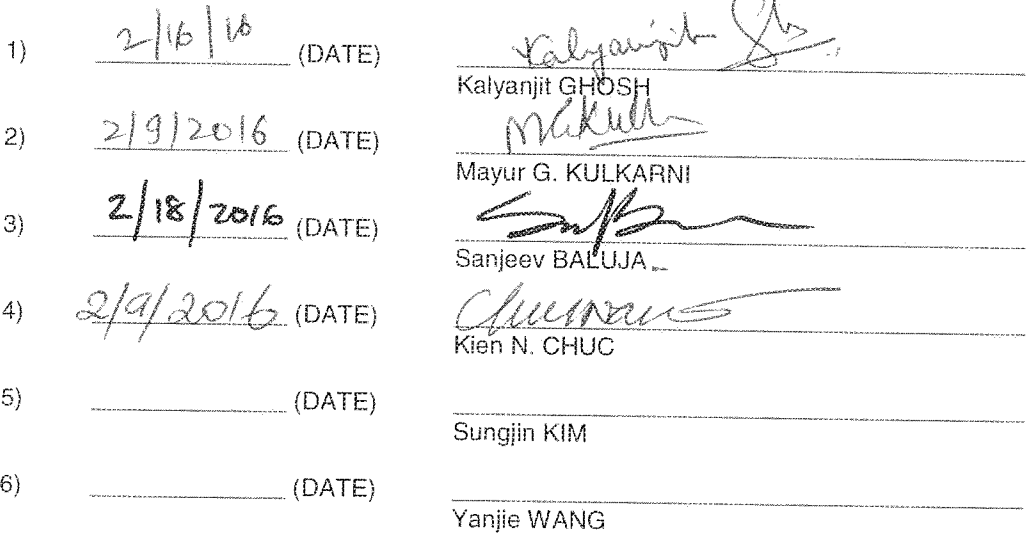 1) 2/16/16 (DATE) Kalyanjit
Kalyanjit GHOSH
2) 2/9/2016 (DATE)
Mayur G. KULKARNI
3) 2/18/2016 (DATE)
Sanjeev BALUJA
4) 2/9/2016 (DATE)
Kien N. CHUC
5) (DATE)
Sungjin KIM
6) (DATE)
Yanjie WANG